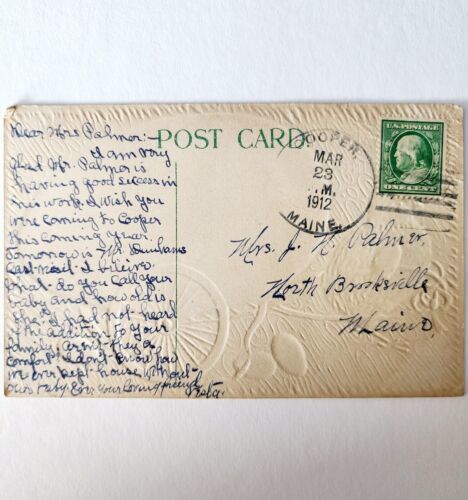 Dear Mrs Palmer:-
I am very
glad Mr. Palmer is
having good success in
his work. I wish you
were coming to Cooper
this coming year.
Tomorrow is Mr
last I believe.
What do you call your
baby and how old is
she? I had not heard
of the addition to your
family. aren't they a
comfort. I don't know how
we ever kept house without
our baby. Ever your loving friend
POST CARD
COOPER,
MAR
23
M.
1912
MAINE.
U.S. POSTAGE
ONE CENT
Mrs. J. H. Palmer,
North Brooksville
Maine.